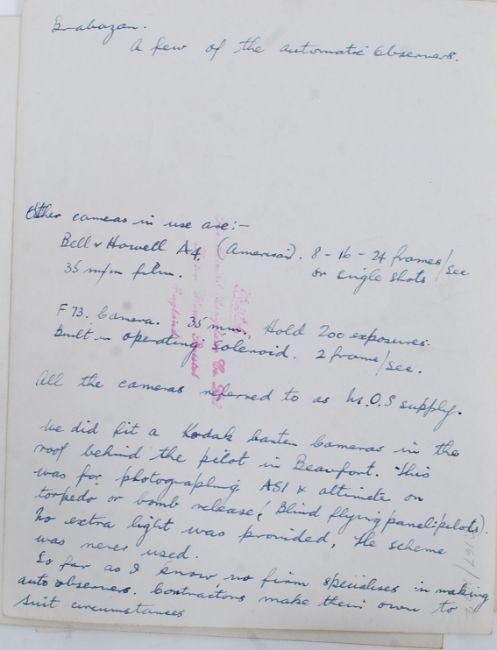 Brabazon.
A few of the automatic Observers.
Other cameras in use are:-
Bell & Howell A4 (American). 8 - 16 - 24 frames/sec
35 m/m film. or single shots
F 73. Camera. 35 mm. Hold 200 exposures.
Built in operating solenoid. 2 frame/sec.
All the cameras referred to as M.O.S supply.
We did fit a Kodak banten Cameras in the
roof behind the pilot in Beaufort. This
was for photographing ASI & altimite on
torpedo or bomb release, (Blind flying panel: pilots).
No extra light was provided, the scheme
was never used.
So far as I know, no firm specialises in making
auto observers. Contractors make them own to
suit circumstances